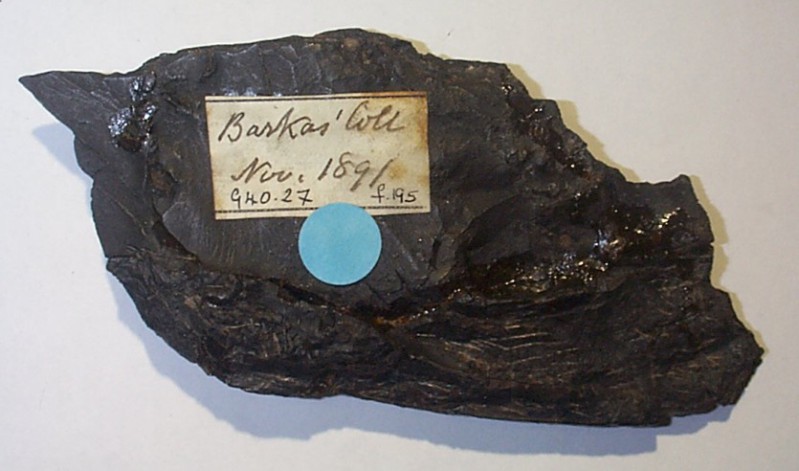 Barkas' Coll
Nov. 1891
G40.27 f.195